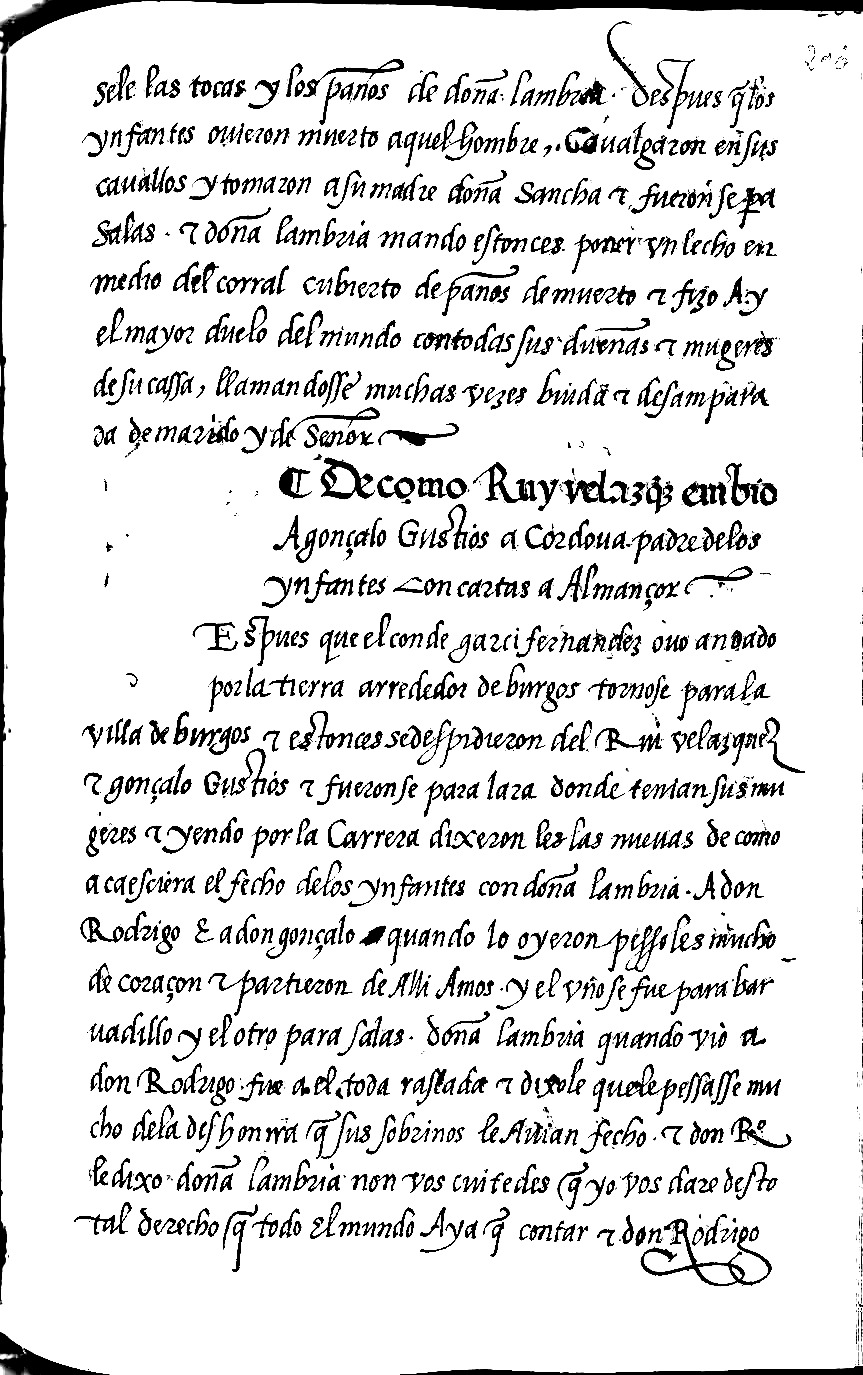 sele las tocas y los paños de doña lambra. Despues q̃ los
ynfantes ouieron muerto aquel hombre, Caualgaron en sus
cauallos y tomaron a su madre doña Sancha ⁊ fueron se pa
Salas. ⁊ doña lambria mando estonces poner vn lecho en
medio del corral cubierto de paños de muerto ⁊ fizo Ay
el mayor duelo del mundo con todas sus dueñas ⁊ mugeres
de su cassa, llamandosse muchas vezes biuda ⁊ desampara
da de marido y de Señor
¶ De como Ruy velazq̃z embio
A gonçalo Gustios a Cordoua padre de los
ynfantes con cartas a Almançor
Espues que el conde garci fernandez ouo andado
por la tierra arrededor de burgos tornose para la
villa de burgos ⁊ estonces se despidieron del Rui velazquez
⁊ gonçalo Gustios ⁊ fueronse para lara donde tenian sus mu
geres ⁊ yendo por la Carrera dixeron les las nueuas de como
acaesciera el fecho de los ynfantes con doña lambria. A don
Rodrigo & a don gonçalo quando lo oyeron pessoles mucho
de coraçon ⁊ partieron de Alli Amos. y el vño se fue para bar
uadillo y el otro para salas. doña lambria quando vio a
don Rodrigo fue a el toda rascada ⁊ dixole que le pessasse mu
cho de la deshonrra q̃ sus sobrinos le Auian fecho. ⁊ don Rº
le dixo doña lambria non vos cuitedes q̃ yo vos dare desto
tal derecho q̃ todo el mundo Aya q̃ contar ⁊ don Rodrigo